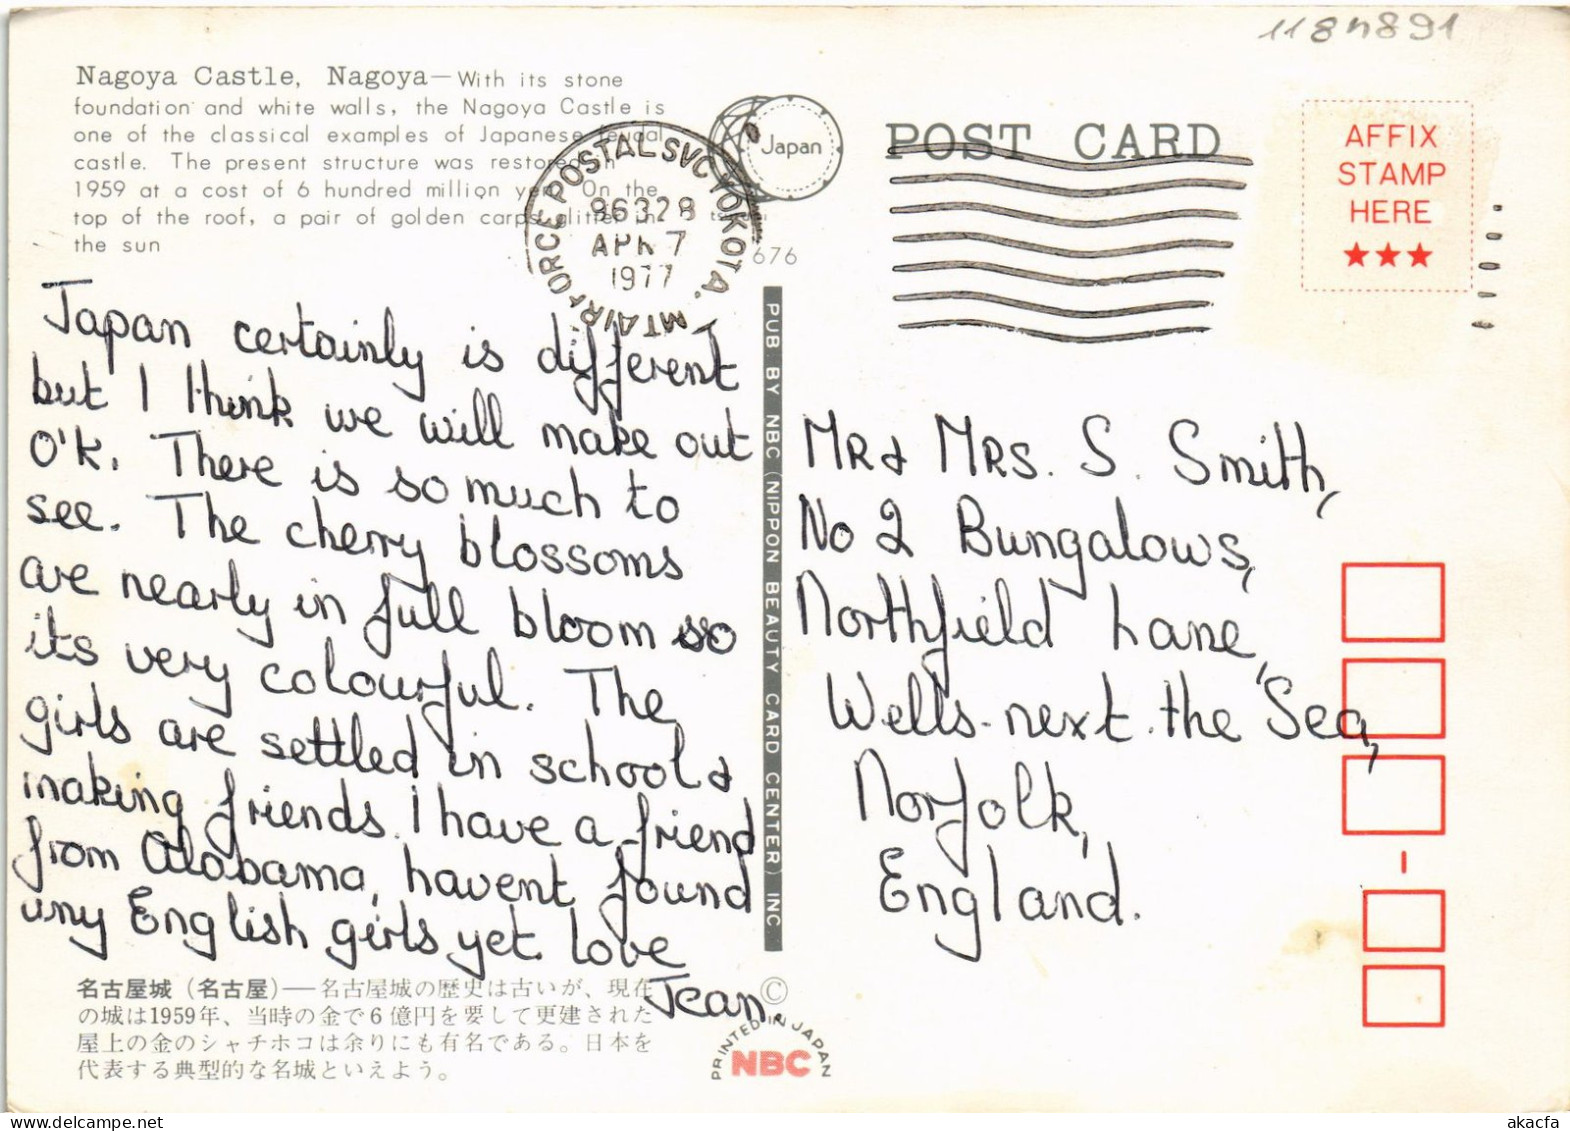 118n891
Nagoya Castle, Nagoya—With its stone
foundation and white walls, the Nagoya Castle is
one of the classical examples of Japanese feudal
castle. The present structure was restored in
1959 at a cost of 6 hundred million yen. On the
top of the roof, a pair of golden carps glitter in
the sun
AIR FORCE POSTAL SVC YOKOTA. MT
96328
APR 7
1977
Japan
676
POST CARD
AFFIX
STAMP
HERE
★★★
Japan certainly is different
but I think we will make out
O'K. There is so much to
see. The cherry blossoms
are nearly in full bloom so
its very colourful. The
girls are settled in school &
making friends. I have a friend
from Alabama, havent found
any English girls yet. love
Jean.
PUB BY NBC (NIPPON BEAUTY CARD CENTER) INC
MR & MRS. S. Smith,
No 2 Bungalows,
Northfield Lane,
Wells-next-the Sea,
Norfolk,
England.
名古屋城（名古屋）—名古屋城の歴史は古いが、現在
の城は1959年、当時の金で6億円を要して更建された
屋上の金のシャチホコは余りにも有名である。日本を
代表する典型的な名城といえよう。
©
PRINTED IN JAPAN
NBC
akacfa